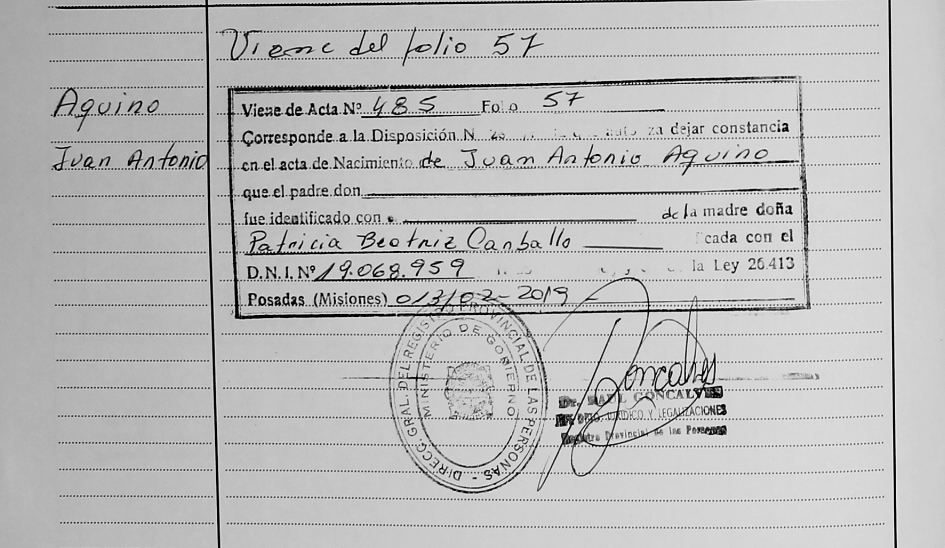 Viene del folio 57
Aquino
Juan Antonio
Viene de Acta Nº 485 Folio 57
Corresponde a la Disposición N dejar constancia
en el acta de Nacimiento de Juan Antonio Aquino
que el padre don
fue identificado con de la madre doña
Patricia Beatriz Carballo cada con el
D.N.I. Nº 19.068.959 la Ley 26.413
Posadas (Misiones) 2019
DIRECC. GRAL. DEL REGISTRO PROVINCIAL DE LAS PERSONAS
MINISTERIO DE GOBIERNO
Goncalves
Dr. RAUL GONCALVES
JURIDICO Y LEGALIZACIONES
Registro Provincial de las Personas